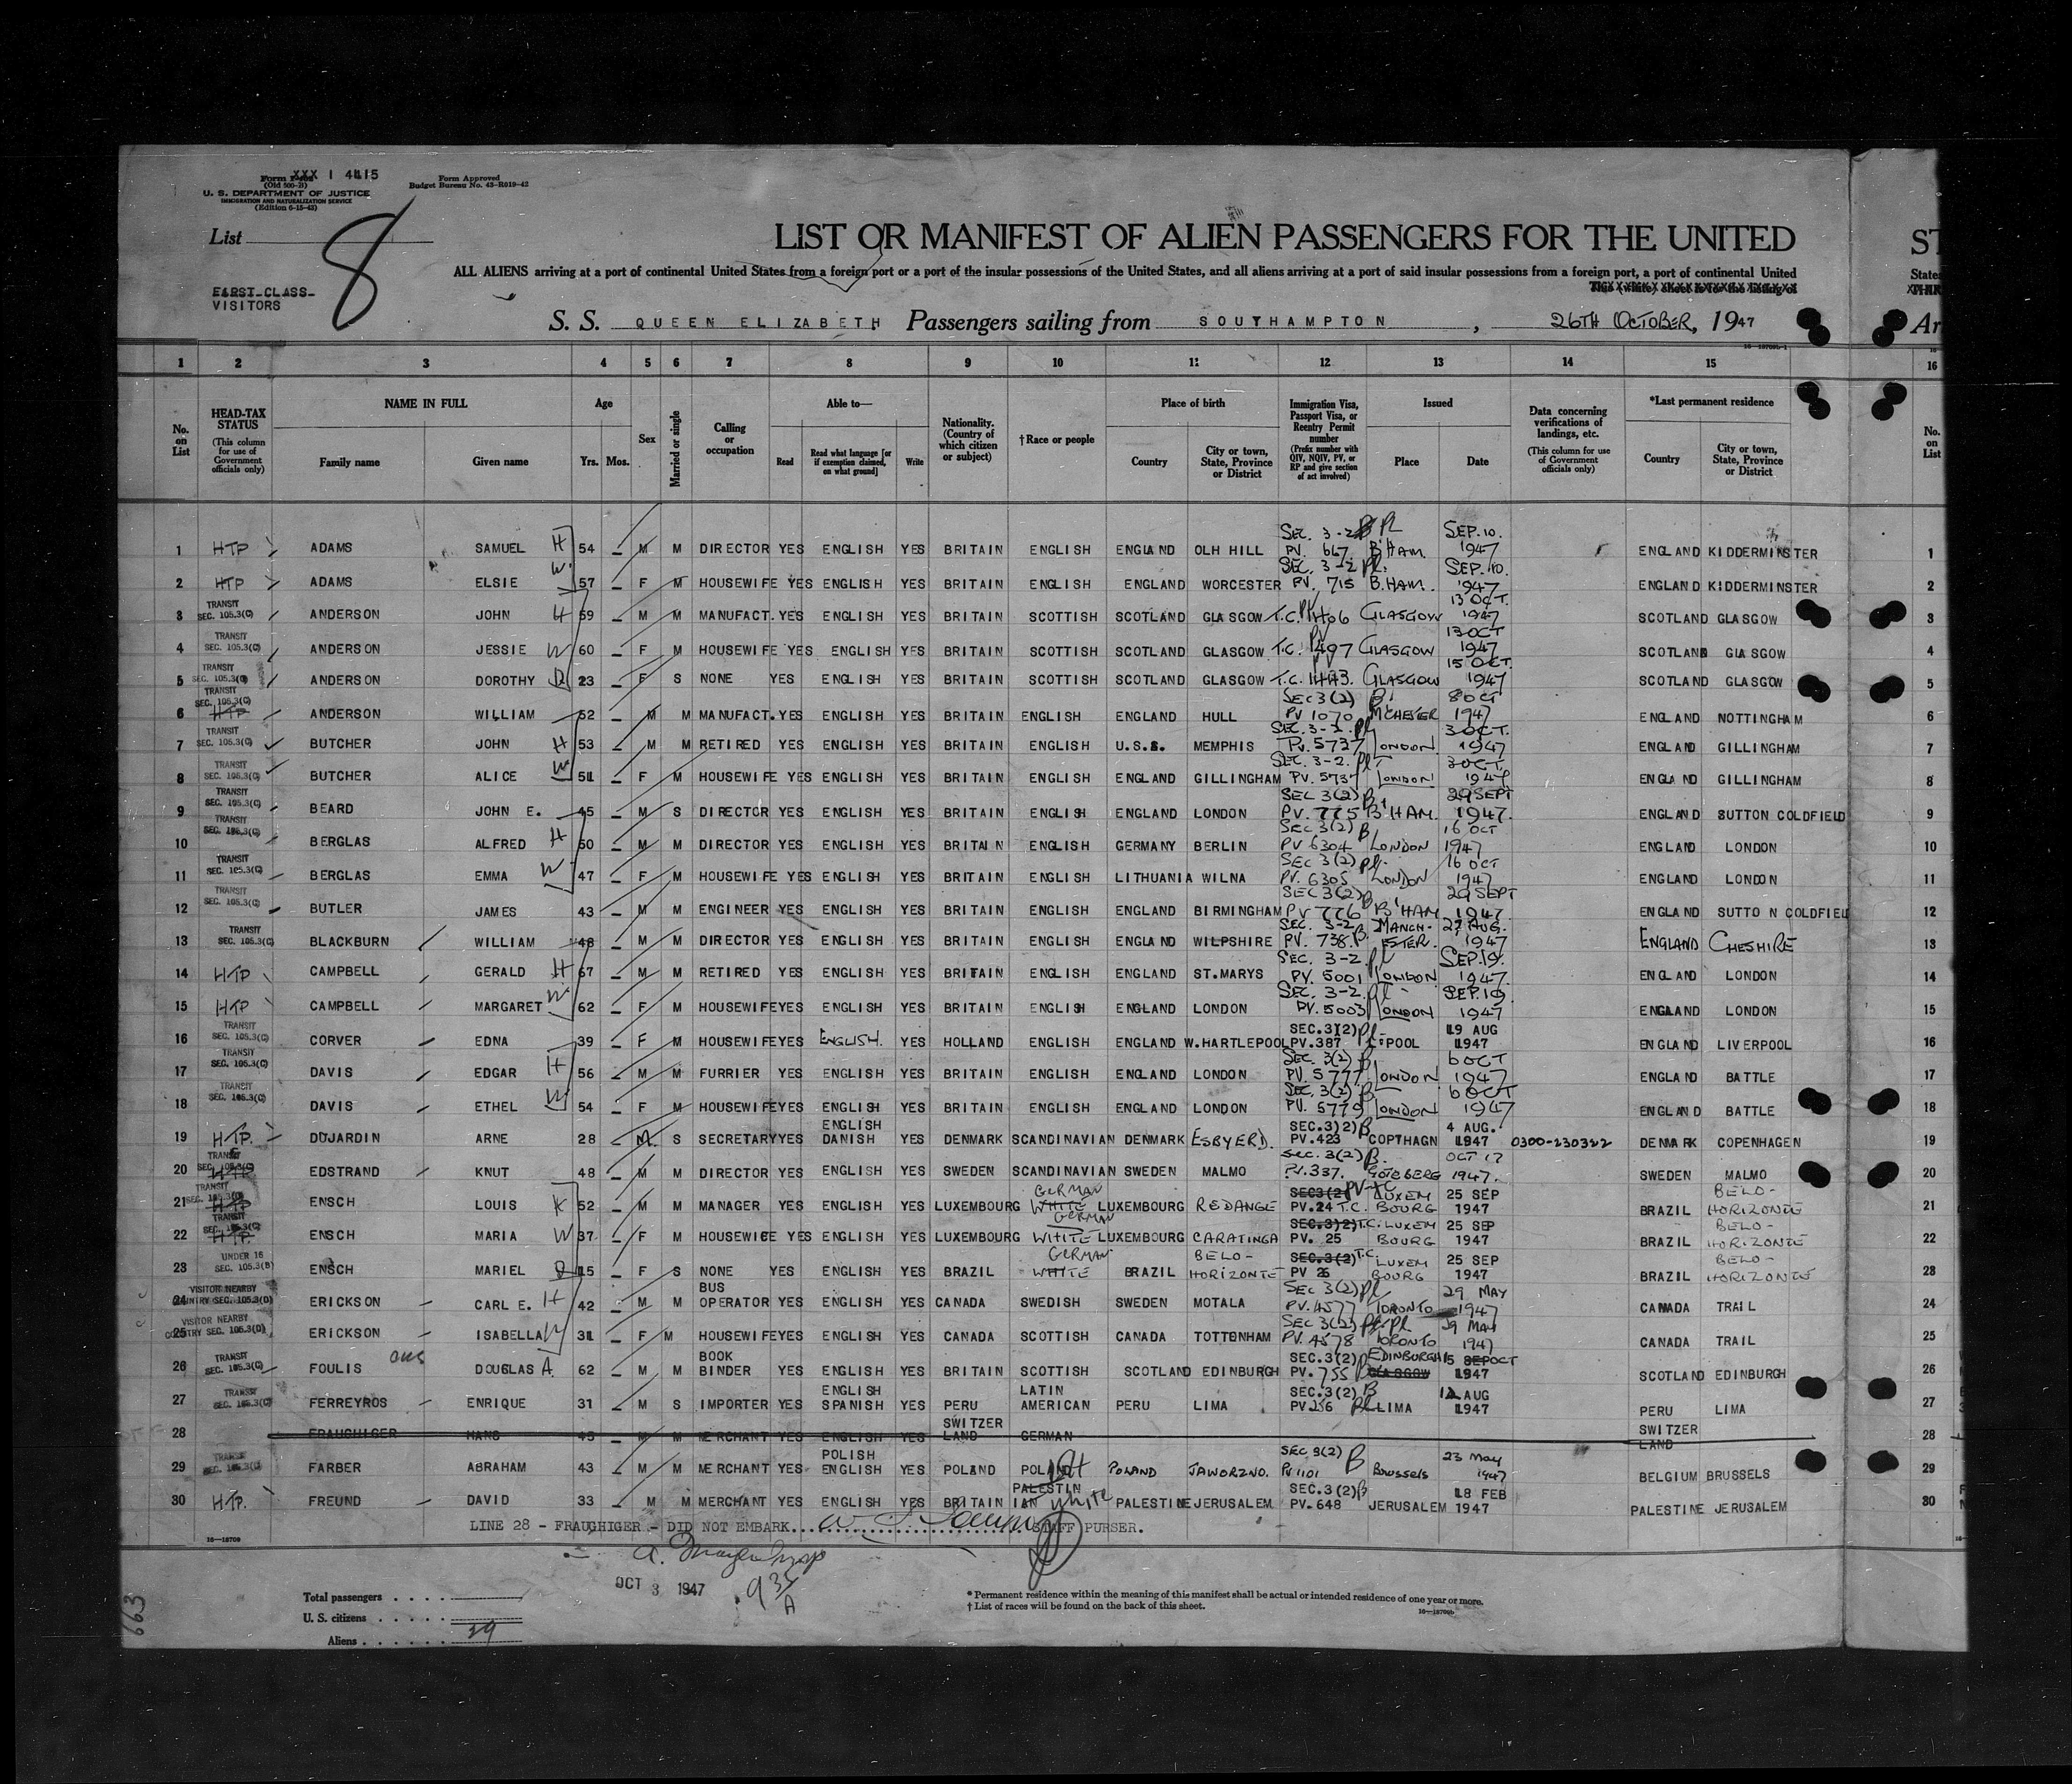 Form XXX I 4415
(Old 500-21)
U. S. DEPARTMENT OF JUSTICE
IMMIGRATION AND NATURALIZATION SERVICE
(Edition 6-15-43)
Form Approved
Budget Bureau No. 43-R019-42
List 8
LIST OR MANIFEST OF ALIEN PASSENGERS FOR THE UNITED
ALL ALIENS arriving at a port of continental United States from a foreign port or a port of the insular possessions of the United States, and all aliens arriving at a port of said insular possessions from a foreign port, a port of continental United
FIRST CLASS
VISITORS
S. S. QUEEN ELIZABETH Passengers sailing from SOUTHAMPTON, 26TH OCTOBER, 1947
1 2 3 4 5 6 7 8 9 10 11 12 13 14 15 16
No. on List
HEAD-TAX STATUS (This column for use of Government officials only)
NAME IN FULL Family name Given name
Age Yrs. Mos.
Sex
Married or single
Calling or occupation
Able to— Read Read what language [or if exemption claimed, on what ground] Write
Nationality. (Country of which citizen or subject)
†Race or people
Place of birth Country City or town, State, Province or District
Immigration Visa, Passport Visa, or Reentry Permit number (Prefix number with QIV, NQIV, PV, or RP and give section of act involved)
Issued Place Date
Data concerning verifications of landings, etc. (This column for use of Government officials only)
*Last permanent residence Country City or town, State, Province or District
No. on List
1 HTP ADAMS SAMUEL H 54 M M DIRECTOR YES ENGLISH YES BRITAIN ENGLISH ENGLAND OLH HILL SEC. 3-2 PV. 667 B'HAM. SEP.10. 1947 ENGLAND KIDDERMINSTER 1
2 HTP ADAMS ELSIE W 57 F M HOUSEWIFE YES ENGLISH YES BRITAIN ENGLISH ENGLAND WORCESTER SEC. 3-2 PV. 715 B.HAM. SEP.10. 1947 ENGLAND KIDDERMINSTER 2
3 TRANSIT SEC. 105.3(C) ANDERSON JOHN H 59 M M MANUFACT. YES ENGLISH YES BRITAIN SCOTTISH SCOTLAND GLASGOW T.C. GLASGOW 13 OCT. 1947 SCOTLAND GLASGOW 3
4 TRANSIT SEC. 105.3(C) ANDERSON JESSIE W 60 F M HOUSEWIFE YES ENGLISH YES BRITAIN SCOTTISH SCOTLAND GLASGOW T.C. GLASGOW 13 OCT 1947 SCOTLAND GLASGOW 4
5 TRANSIT SEC. 105.3(C) ANDERSON DOROTHY D 23 F S NONE YES ENGLISH YES BRITAIN SCOTTISH SCOTLAND GLASGOW T.C. GLASGOW 15 OCT. 1947 SCOTLAND GLASGOW 5
6 TRANSIT SEC. 105.3(C) HTP ANDERSON WILLIAM 52 M M MANUFACT. YES ENGLISH YES BRITAIN ENGLISH ENGLAND HULL SEC 3(2) PV 1070 M'CHESTER 8 OCT 1947 ENGLAND NOTTINGHAM 6
7 TRANSIT SEC. 105.3(C) BUTCHER JOHN H 53 M M RETIRED YES ENGLISH YES BRITAIN ENGLISH U.S.S. MEMPHIS SEC. 3-2. PV. 5737 LONDON 3 OCT. 1947 ENGLAND GILLINGHAM 7
8 TRANSIT SEC. 105.3(C) BUTCHER ALICE W 51 F M HOUSEWIFE YES ENGLISH YES BRITAIN ENGLISH ENGLAND GILLINGHAM SEC. 3-2. PV. LONDON 3 OCT. 1947 ENGLAND GILLINGHAM 8
9 TRANSIT SEC. 105.3(C) BEARD JOHN E. 45 M S DIRECTOR YES ENGLISH YES BRITAIN ENGLISH ENGLAND LONDON SEC 3(2) PV. 775 B'HAM. 29 SEPT 1947. ENGLAND SUTTON COLDFIELD 9
10 TRANSIT SEC. 105.3(C) BERGLAS ALFRED H 50 M M DIRECTOR YES ENGLISH YES BRITAIN ENGLISH GERMANY BERLIN SEC 3(2) PV 6304 LONDON 16 OCT 1947 ENGLAND LONDON 10
11 TRANSIT SEC. 105.3(C) BERGLAS EMMA W 47 F M HOUSEWIFE YES ENGLISH YES BRITAIN ENGLISH LITHUANIA WILNA SEC 3(2) PV. 6305 LONDON 16 OCT 1947 ENGLAND LONDON 11
12 TRANSIT SEC. 105.3(C) BUTLER JAMES 43 M M ENGINEER YES ENGLISH YES BRITAIN ENGLISH ENGLAND BIRMINGHAM SEC 3(2) PV 776 B'HAM 29 SEPT 1947 ENGLAND SUTTON COLDFIELD 12
13 TRANSIT SEC. 105.3(C) BLACKBURN WILLIAM 48 M M DIRECTOR YES ENGLISH YES BRITAIN ENGLISH ENGLAND WILPSHIRE SEC. 3-2 PV. 738. MANCHESTER. 27 AUG. 1947 ENGLAND CHESHIRE 13
14 HTP CAMPBELL GERALD H 67 M M RETIRED YES ENGLISH YES BRITAIN ENGLISH ENGLAND ST.MARYS SEC. 3-2. PV. 5001 LONDON SEP.19. 1947. ENGLAND LONDON 14
15 HTP CAMPBELL MARGARET W 62 F M HOUSEWIFE YES ENGLISH YES BRITAIN ENGLISH ENGLAND LONDON SEC. 3-2. PV. 5003 LONDON SEP.19 1947 ENGLAND LONDON 15
16 TRANSIT SEC. 105.3(C) CORVER EDNA 39 F M HOUSEWIFE YES ENGLISH. YES HOLLAND ENGLISH ENGLAND W.HARTLEPOOL SEC.3(2) PV.387 L'POOL 19 AUG 1947 ENGLAND LIVERPOOL 16
17 TRANSIT SEC. 105.3(C) DAVIS EDGAR H 56 M M FURRIER YES ENGLISH YES BRITAIN ENGLISH ENGLAND LONDON SEC. 3(2) PV. 5777 LONDON 6 OCT 1947 ENGLAND BATTLE 17
18 TRANSIT SEC. 105.3(C) DAVIS ETHEL W 54 F M HOUSEWIFE YES ENGLISH YES BRITAIN ENGLISH ENGLAND LONDON SEC. 3(2) PV. 5779 LONDON 6 OCT 1947 ENGLAND BATTLE 18
19 HTP. DUJARDIN ARNE 28 M. S SECRETARY YES ENGLISH DANISH YES DENMARK SCANDINAVIAN DENMARK ESBYERD. SEC.3)2) PV.423 COPTHAGN 4 AUG. 1947 0300-230322 DENMARK COPENHAGEN 19
20 TRANSIT SEC. 105.3(C) HTP EDSTRAND KNUT 48 M M DIRECTOR YES ENGLISH YES SWEDEN SCANDINAVIAN SWEDEN MALMO SEC. 3(2) PV.337. OCT 17 1947. SWEDEN MALMO 20
21 TRANSIT SEC. 105.3(C) HTP ENSCH LOUIS H 52 M M MANAGER YES ENGLISH YES LUXEMBOURG WHITE GERMAN LUXEMBOURG REDANGE SEC3(2) PV-TC PV.24 T.C. LUXEMBOURG 25 SEP 1947 BRAZIL BELO-HORIZONTE 21
22 TRANSIT SEC. 105.3(C) HTP. ENSCH MARIA W 37 F M HOUSEWICE YES ENGLISH YES LUXEMBOURG WHITE GERMAN LUXEMBOURG CARATINGA SEC.3)2) T.C. PV. 25 LUXEMBOURG 25 SEP 1947 BRAZIL BELO-HORIZONTE 22
23 UNDER 16 SEC. 105.3(B) ENSCH MARIEL D 15 F S NONE YES ENGLISH YES BRAZIL WHITE GERMAN BRAZIL BELO-HORIZONTE SEC.3(2) T.C. PV 26 LUXEMBOURG 25 SEP 1947 BRAZIL BELO-HORIZONTE 23
24 VISITOR NEARBY COUNTRY SEC. 105.3(D) ERICKSON CARL E. H 42 M M BUS OPERATOR YES ENGLISH YES CANADA SWEDISH SWEDEN MOTALA SEC 3(2) PV. 4577 TORONTO 29 MAY 1947 CANADA TRAIL 24
25 VISITOR NEARBY COUNTRY SEC. 105.3(D) ERICKSON ISABELLA W 31 F M HOUSEWIFE YES ENGLISH YES CANADA SCOTTISH CANADA TOTTENHAM SEC 3(2) PV. 4578 TORONTO 29 MAY 1947 CANADA TRAIL 25
26 TRANSIT SEC. 105.3(C) FOULIS DOUGLAS A. 62 M M BOOK BINDER YES ENGLISH YES BRITAIN SCOTTISH SCOTLAND EDINBURGH SEC.3(2) PV. 755 EDINBURGH GLASGOW 15 SEP OCT 1947 SCOTLAND EDINBURGH 26
27 TRANSIT SEC. 105.3(C) FERREYROS ENRIQUE 31 M S IMPORTER YES ENGLISH SPANISH YES PERU LATIN AMERICAN PERU LIMA SEC.3(2) PV256 LIMA 12 AUG 1947 PERU LIMA 27
28 FRAUGHIGER HANS 45 M M MERCHANT YES ENGLISH YES SWITZERLAND GERMAN SWITZERLAND 28
29 TRANSIT SEC. 105.3(C) FARBER ABRAHAM 43 M M MERCHANT YES POLISH ENGLISH YES POLAND POLAND POLAND JAWORZNO. SEC 3(2) PV 1101 BRUSSELS 23 MAY 1947 BELGIUM BRUSSELS 29
30 HTP. FREUND DAVID 33 M M MERCHANT YES ENGLISH YES BRITAIN PALESTINIAN White PALESTINE JERUSALEM SEC.3(2) PV.648 JERUSALEM 18 FEB 1947 PALESTINE JERUSALEM 30
LINE 28 - FRAUGHIGER - DID NOT EMBARK STAFF PURSER.
16—18709
OCT 3 1947 935 A
Total passengers
U. S. citizens
Aliens 29
* Permanent residence within the meaning of this manifest shall be actual or intended residence of one year or more.
† List of races will be found on the back of this sheet.
663